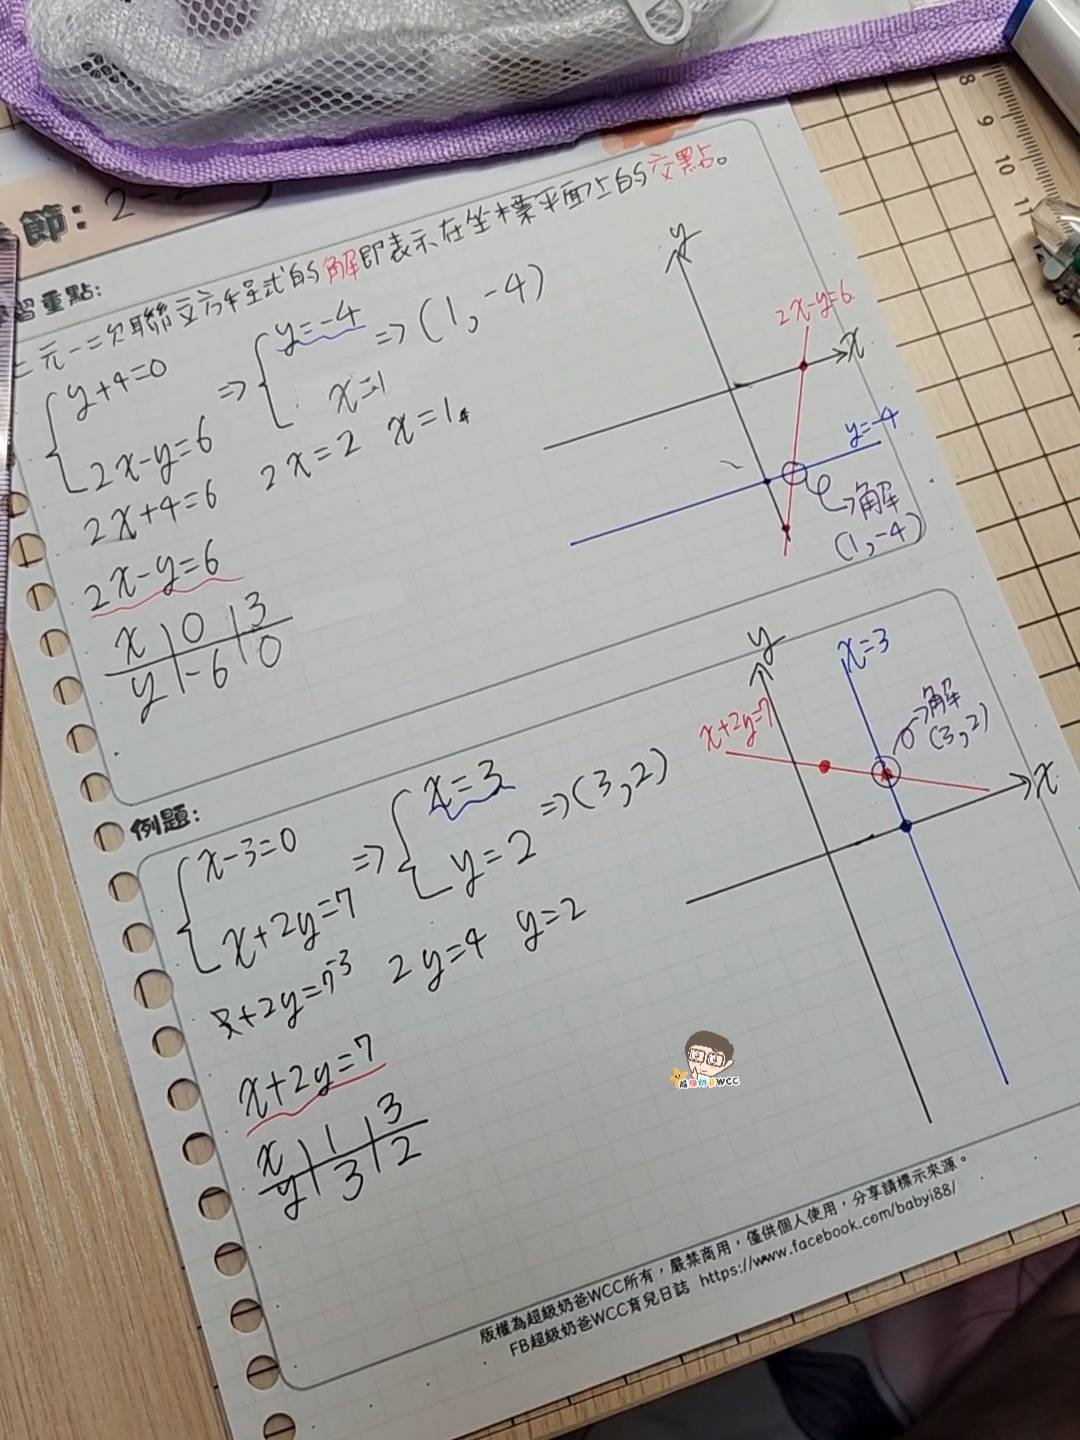 節: 2-2
習重點:
二元一次聯立方程式的解即表示在坐標平面上的交點。
y+4=0
2x-y=6
=>
y=-4
x=1
=> (1, -4)
2x+4=6 2x=2 x=1
2x-y=6
x 0 3
y -6 0
y
x
2x-y=6
y=-4
解
(1,-4)
例題:
x-3=0
x+2y=7
=>
x=3
y=2
=> (3,2)
3+2y=7-3 2y=4 y=2
x+2y=7
x 1 3
y 3 2
y
x
x=3
x+2y=7
解
(3,2)
超級奶爸WCC
版權為超級奶爸WCC所有，嚴禁商用，僅供個人使用，分享請標示來源。
FB超級奶爸WCC育兒日誌 https://www.facebook.com/babyi88/
8
9
10
11